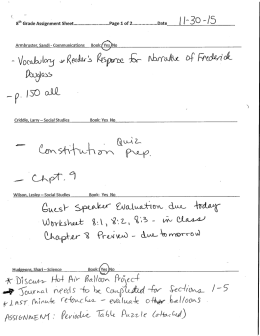 8th Grade Assignment Sheet Page 1 of 2 Date 11-30-15
Armbruster, Sandi - Communications Book: Yes No
- Vocabulary & Reader's Response for Narrative of Frederick
Douglass
- p. 150 all
Criddle, Larry - Social Studies Book: Yes No
- Constitution Quiz Prep.
- Chpt. 9
Wilson, Lesley - Social Studies Book: Yes No
Guest Speaker Evaluation due today
Worksheet 8:1, 8:2, 8:3 - in class
Chapter 8 Preview - due tomorrow
Science Book: Yes No
* Discuss Hot Air Balloon Project
→ Journal needs to be completed for Sections 1-5
* Last minute retouches - evaluate other balloons
ASSIGNMENT: Periodic Table Puzzle (attached)